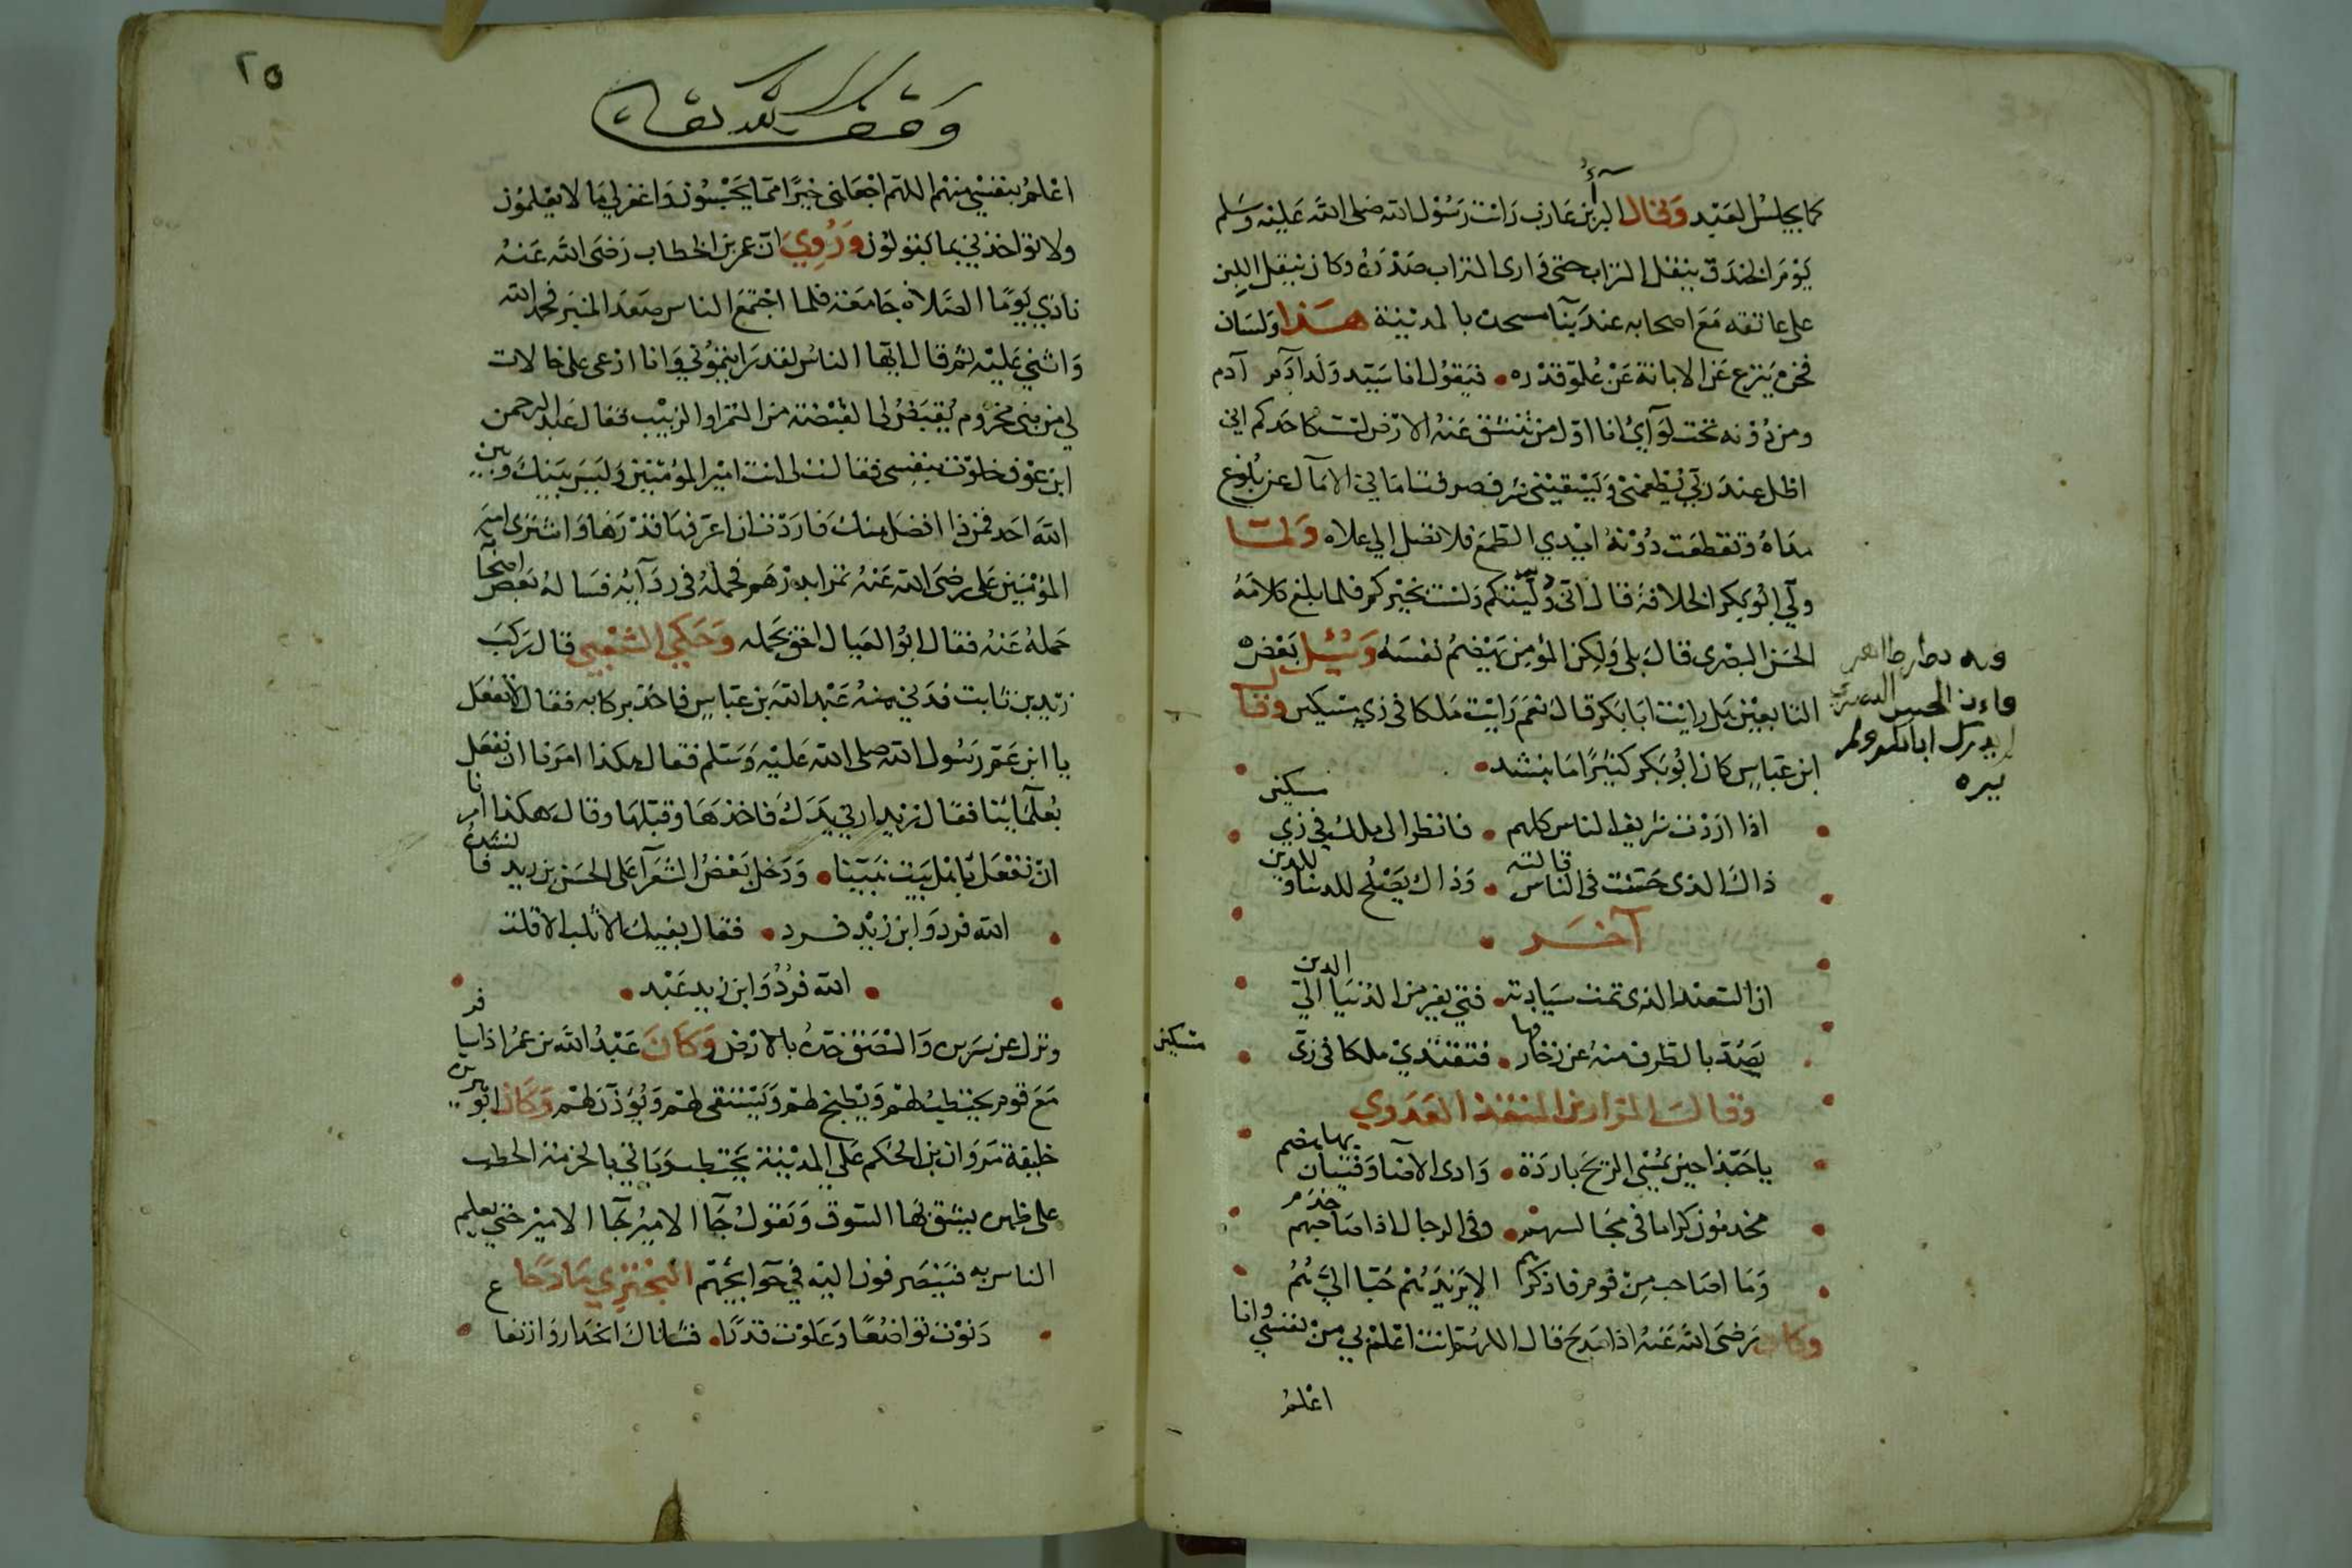 كما يجلس العبد وقال البرآء بن عازب رايت رسول الله صلى الله عليه وسلم
يوم الخندق ينقل التراب حتى وارى التراب صدره وكان ينقل اللبن
على عاتقه مع اصحابه عند بنآ مسجده بالمدينة هذا ولسان
فخره يترع عن الابانة عن علو قدره فيقول انا سيد ولد آدم آدم
ومن دونه تحت لوآى انا اول من تنشق عنه الارض لست كاحدكم اني
اظل عند ربي يطعمني ويسقيني شرف صرفت اماني الآمال عن بلوغ
مداه وتقطعت دونه ايدي الطمع فلا تصل الى علاه ولما
ولي ابو بكر الخلافة قال اني وليتكم ولست بخيركم فلما بلغ كلامه
الحسن البصرى قال بلى ولكن المؤمن يهضم نفسه وسئل بعض
التابعين هل رايت ابا بكر قال نعم رايت ملكا في زي مسكين وقال
ابن عباس كان ابو بكر كثيرا ما ينشد
اذا اردت شريف الناس كلهم فانظر الى ملك في زي مسكين
ذاك الذى حسنت في الناس قالته وذاك يصلح للدنيا وللدين
آخر
ان السعيد الذى تمت سيادته فتى يفر من الدنيا الى الدين
يصد بالطرف منه عن زخارفها فتقتدي ملكا في زى مسكين
وقال المرار بن المنقذ العدوي
يا حبذا حين تمسي الريح باردة وادى الاقنا وفتيان بها هضم
مخدمون كراما في مجالسهم وفي الرحال اذا صاحبهم خدم
وما اصاحب من قوم فاذكرهم الا يزيدهم حبا الي هم
وكان رضى الله عنه اذا مدح قال اللهم انت اعلم بي من نفسي وانا
اعلم
وفيه نظر ظاهر
فان الحسن البصري
لم يدرك ابا بكر ولم
يره
٢٥
وقف لله تعالى
اعلم بنفسي منهم اللهم اجعلني خيرا مما يحسبون واغفر لي ما لا يعلمون
ولا تواخذني بما يقولون وروي ان عمر بن الخطاب رضى الله عنه
نادى يوما الصلاة جامعة فلما اجتمع الناس صعد المنبر فحمد الله
واثنى عليه ثم قال ايها الناس لقد رايتموني وانا ارعى على خالات
لي من بنى مخزوم يقبضن لى القبضة من التمر او الزبيب فقال عبد الرحمن
ابن عوف خلوت بنفسى فقالت لى انت امير المؤمنين وليس بينك وبين
الله احد فمن ذا افضل منك فاردت ان اعرفها قدرها واشترى امير
المؤمنين على رضى الله عنه تمرا بدرهم فحمله في ردآيه فساله بعض اصحابه
حمله عنه فقال ابو العيال احق بحمله وحكي الشعبي قال ركب
زيد بن ثابت فدنى منه عبد الله بن عباس فاخذ بركابه فقال لا تفعل
يا ابن عم رسول الله صلى الله عليه وسلم فقال هكذا امرنا ان نفعل
بعلمائنا فقال زيد ارني يدك فاخذها وقبلها وقال هكذا امرنا
ان نفعل باهل بيت نبينا ودخل بعض الشعرآ على الحسن بن زيد فانشده
الله فرد وابن زيد فرد فقال بفيك الاثلب الا قلت
الله فرد وابن زيد عبد
ونزل عن سريره والصق خده بالارض وكان عبد الله بن عمر اذا سافر
مع قوم يحتطب لهم ويطبخ لهم ويستقى لهم ويؤذن لهم وكان ابو هريرة
خليفة مروان بن الحكم على المدينة يحتطب ويأتي بالحزمة الحطب
على ظهره يشق بها السوق ويقول جآ الامير جآ الامير حتى يعلم
الناس به فينصرفون اليه في حوايجهم البحتري مادحا ع
دنوت تواضعا وعلوت قدرا فشاناك انحدار وارتفا